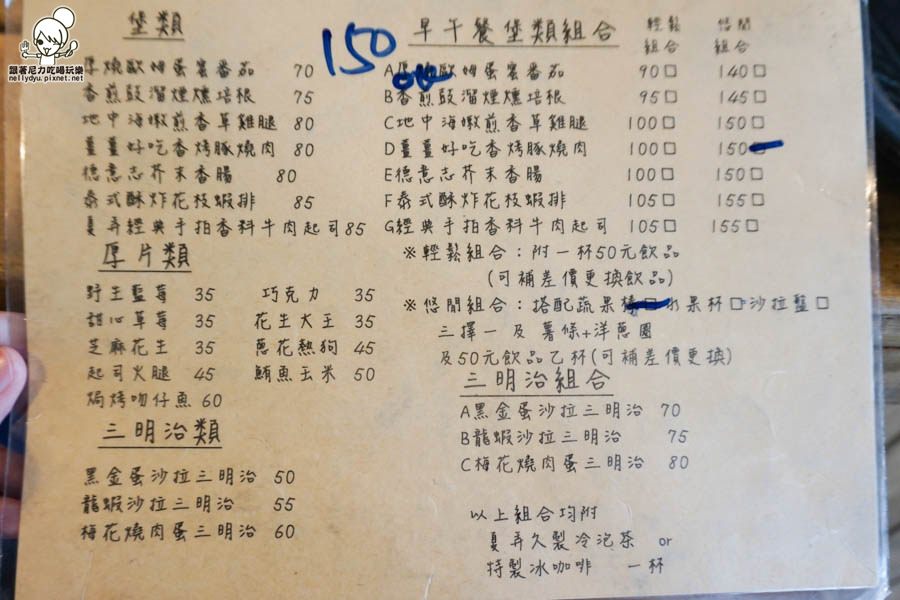 跟著尼力吃喝玩樂
nellydyu.pixnet.net
堡類
厚燒歐姆蛋蜜番茄 70
香煎酸溜煙燻培根 75
地中海嫩煎香草雞腿 80
薑薑好吃香烤豚燒肉 80
德意志芥末香腸 80
泰式酥炸花枝蝦排 85
夏弄經典手拍香料牛肉起司 85
厚片類
野生藍莓 35 巧克力 35
甜心草莓 35 花生大王 35
芝麻花生 35 蔥花熱狗 45
起司火腿 45 鮪魚玉米 50
焗烤吻仔魚 60
三明治類
黑金蛋沙拉三明治 50
龍蝦沙拉三明治 55
梅花燒肉蛋三明治 60
150
早午餐堡類組合 輕鬆組合 悠閒組合
A厚燒歐姆蛋蜜番茄 90□ 140□
B香煎酸溜煙燻培根 95□ 145□
C地中海嫩煎香草雞腿 100□ 150□
D薑薑好吃香烤豚燒肉 100□ 150□
E德意志芥末香腸 100□ 150□
F泰式酥炸花枝蝦排 105□ 155□
G經典手拍香料牛肉起司 105□ 155□
※輕鬆組合：附一杯50元飲品
(可補差價更換飲品)
※悠閒組合：搭配蔬果棒□水果杯□沙拉籃□
三擇一 及 薯條+洋蔥圈
及50元飲品乙杯(可補差價更換)
三明治組合
A黑金蛋沙拉三明治 70
B龍蝦沙拉三明治 75
C梅花燒肉蛋三明治 80
以上組合均附
夏弄久製冷泡茶 or
特製冰咖啡 一杯